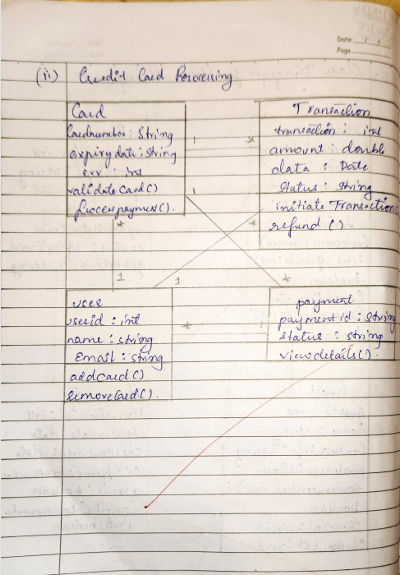 Date
Page
(ii) Credit Card Processing
Card
Cardnumber : String
expiry date : string
cvv : int
validate card()
Process payment().
Transaction
transaction : int
amount : double
data : Date
Status : string
initiate Transaction()
refund ().
1 *
1
* *
1 1 *
user
userid : int
name : string
Email : string
add card()
remove card()
* 1
payment
payment id : string
status : string
view details().